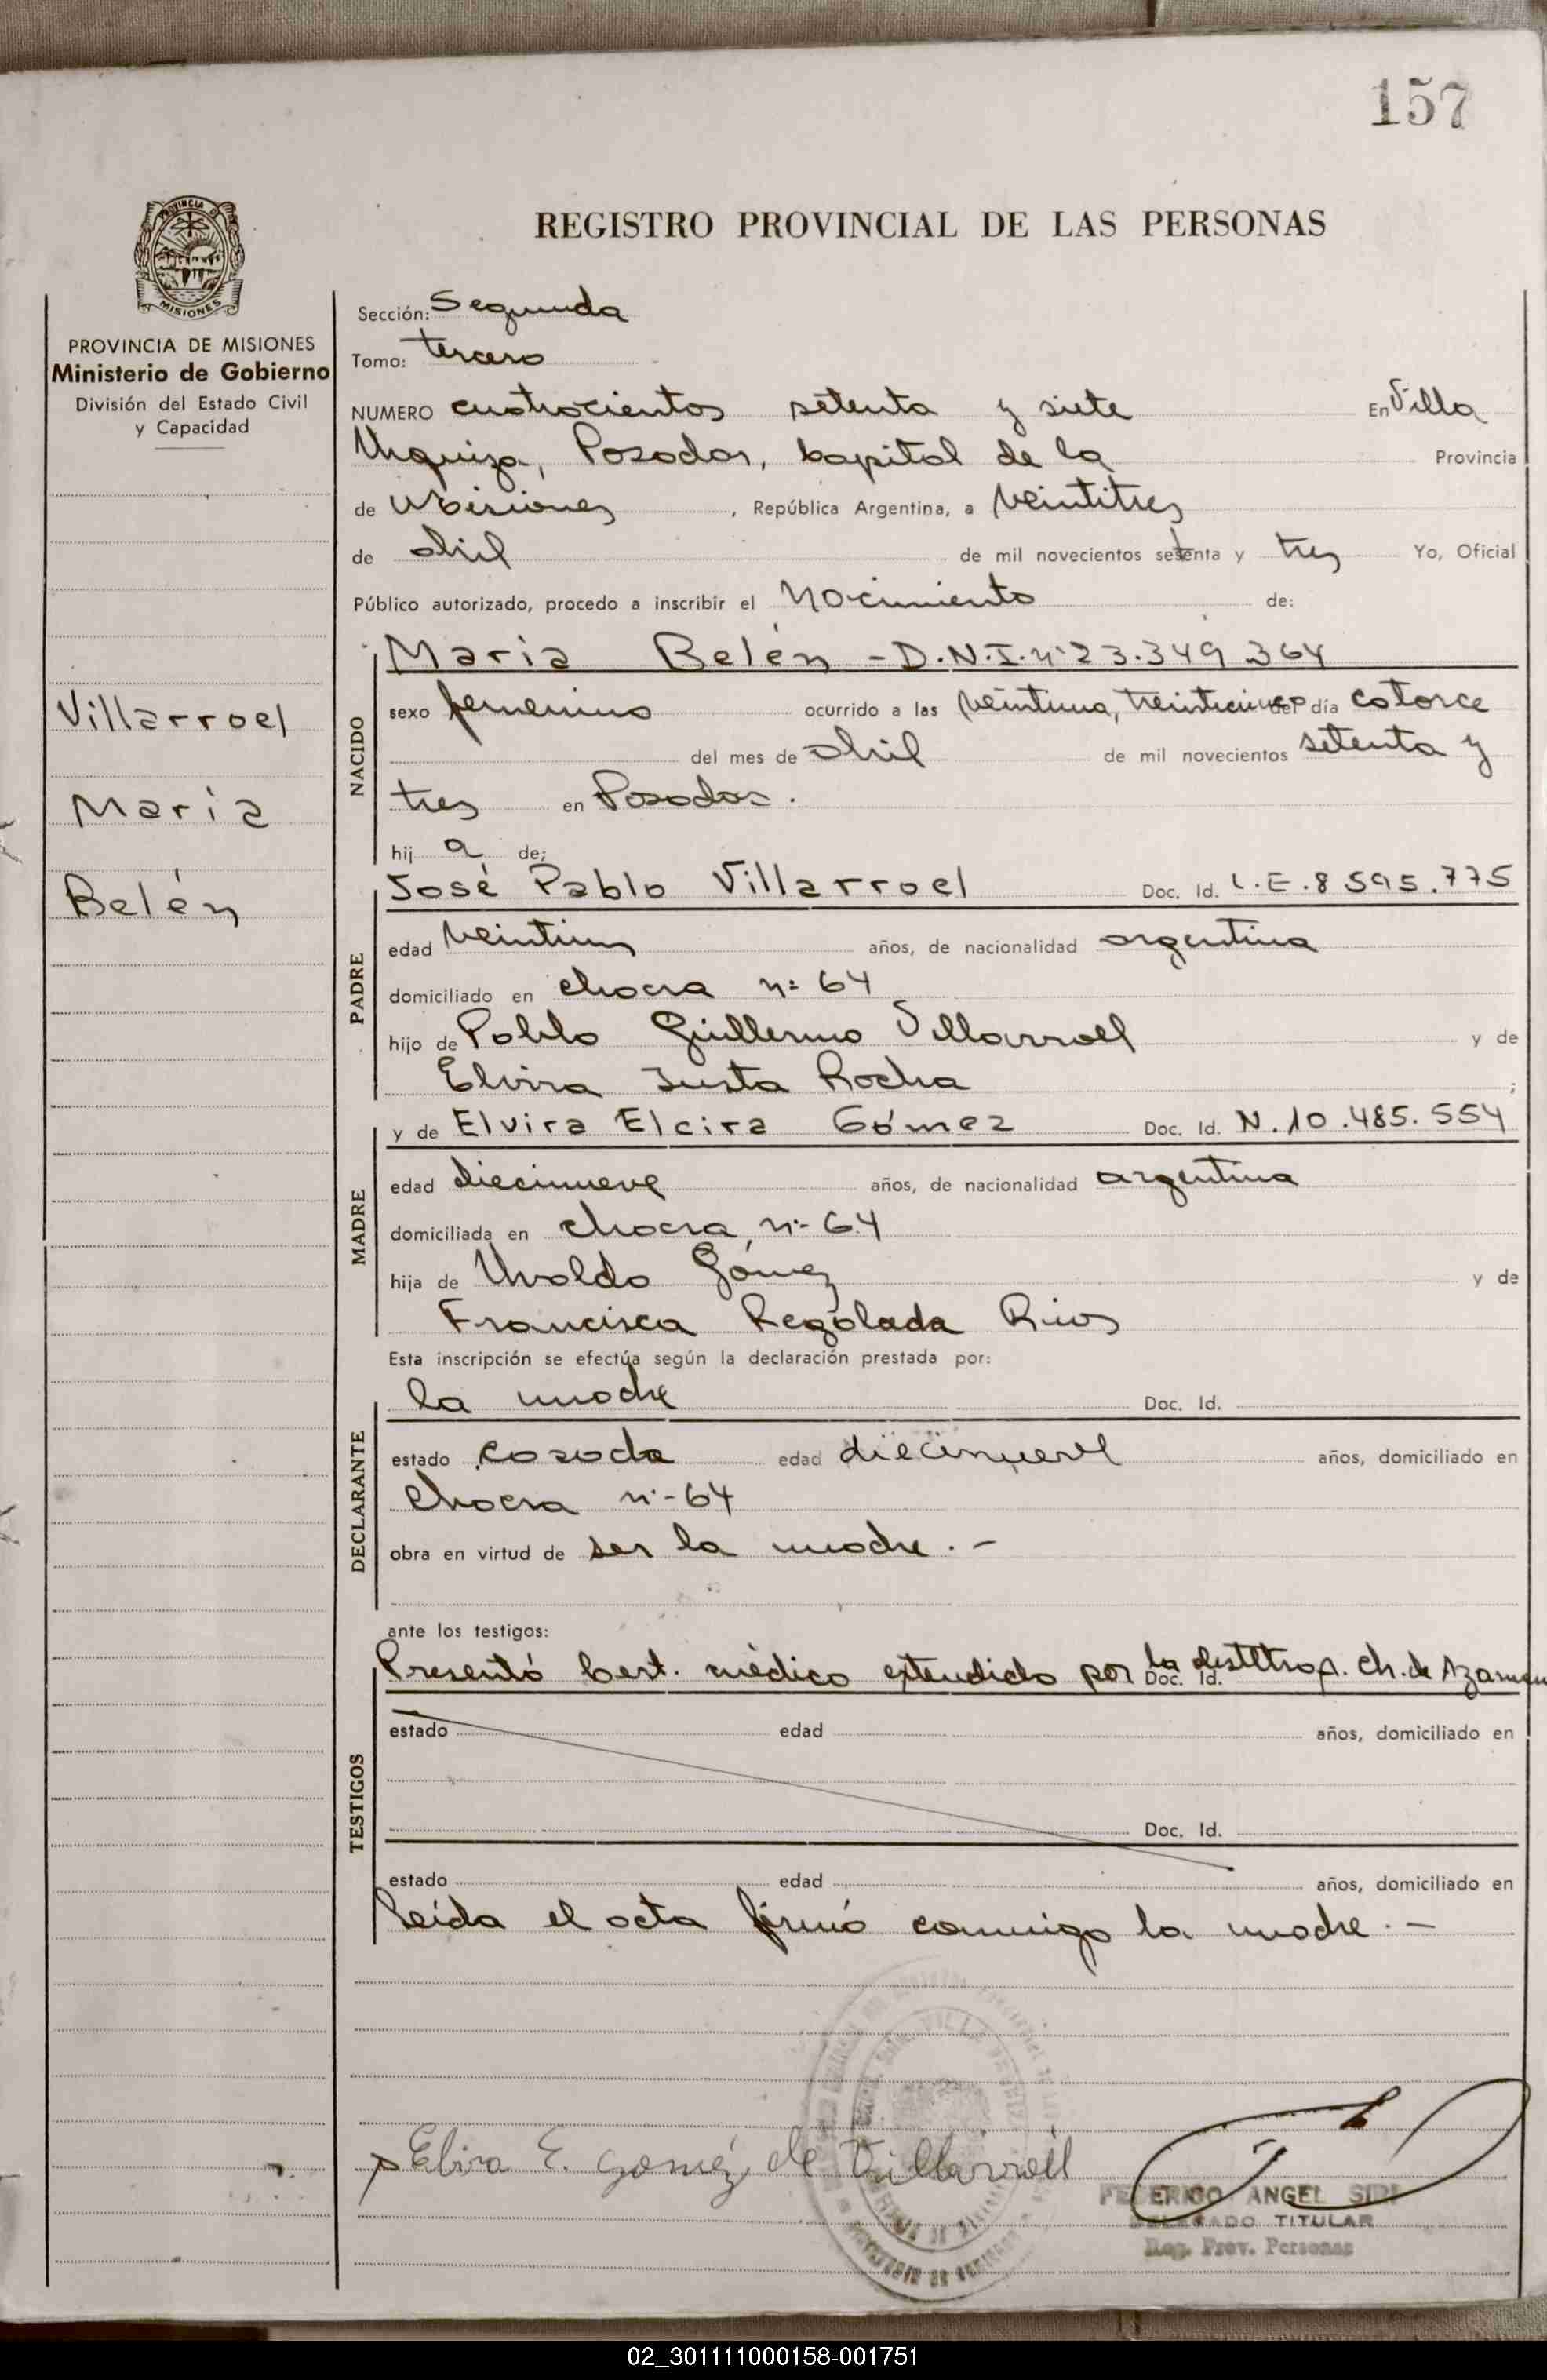 157
REGISTRO PROVINCIAL DE LAS PERSONAS
PROVINCIA DE MISIONES
Ministerio de Gobierno
División del Estado Civil
y Capacidad
Villarroel
María
Belén
Sección: Segunda
Tomo: tercero
NUMERO cuatrocientos setenta y siete En Villa
Urquiza, Posadas, Capital de la Provincia
de Misiones, República Argentina, a veintitres
de abril de mil novecientos setenta y tres Yo, Oficial
Público autorizado, procedo a inscribir el Nacimiento de:
NACIDO
María Belén - D.N.I. nº 23.349.364
sexo femenino ocurrido a las veintiuna, treinticinco del día catorce
del mes de abril de mil novecientos setenta y
tres en Posadas.
hij a de;
PADRE
José Pablo Villarroel Doc. Id. L.E. 8 595.775
edad veintiun años, de nacionalidad argentina
domiciliado en chacra nº 64
hijo de Pablo Guillermo Villarroel y de
Elvira Justa Rocha ;
MADRE
y de Elvira Elcira Gómez Doc. Id. N. 10.485.554
edad diecinueve años, de nacionalidad argentina
domiciliada en chacra nº 64
hija de Uvaldo Gómez y de
Francisca Regalada Rios
Esta inscripción se efectúa según la declaración prestada por:
DECLARANTE
la madre Doc. Id.
estado casada edad diecinueve años, domiciliado en
chacra nº 64
obra en virtud de ser la madre. -
ante los testigos:
TESTIGOS
Presentó Cert. médico extendido por la Doc. Id. ch. de
estado edad años, domiciliado en
Doc. Id.
estado edad años, domiciliado en
Leída el acta firmó conmigo la madre. -
Elvira E. Goméz de Villarroel
FEDERICO ANGEL SIRI
DELEGADO TITULAR
Reg. Prov. Personas
02_301111000158-001751